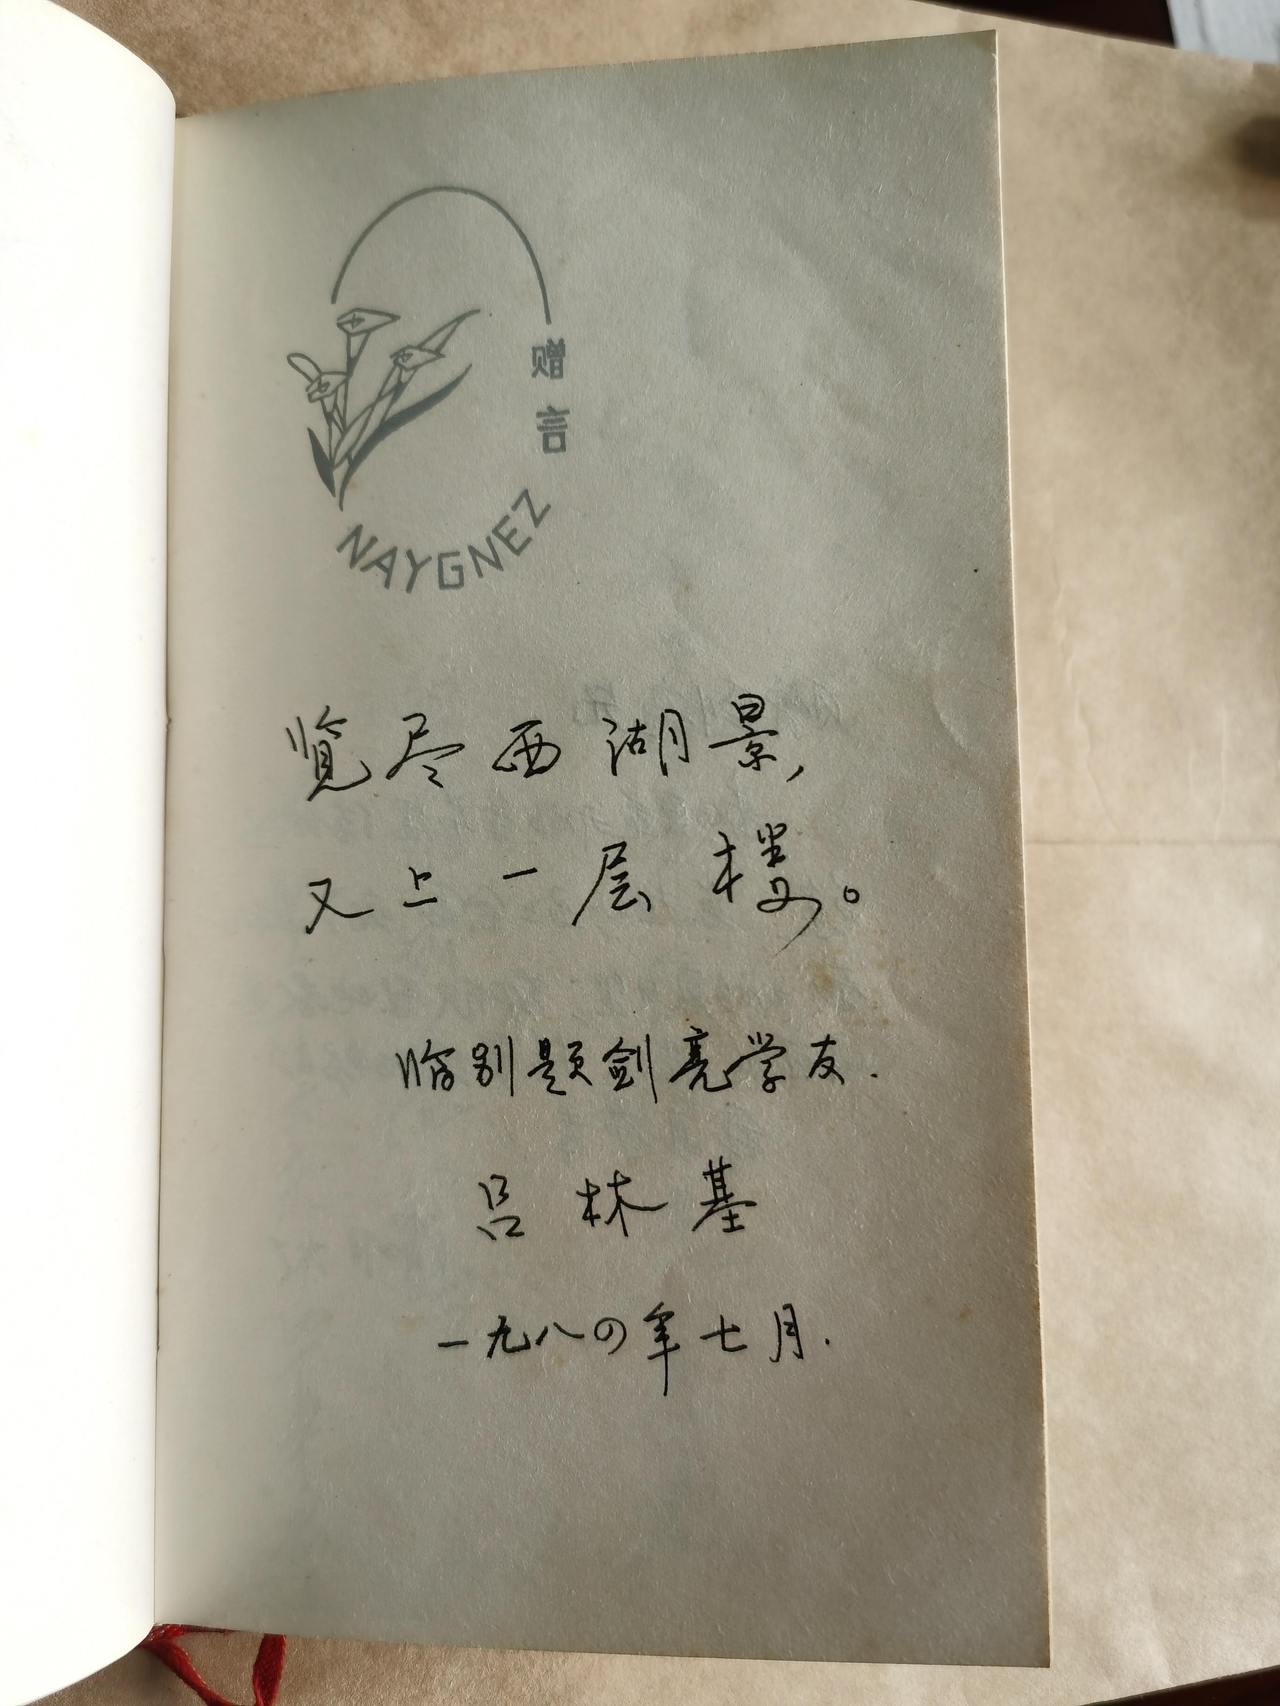 赠言
NAYGNEZ
览尽西湖景,
又上一层楼。
临别题剑亮学友.
吕林基
一九八四年七月.